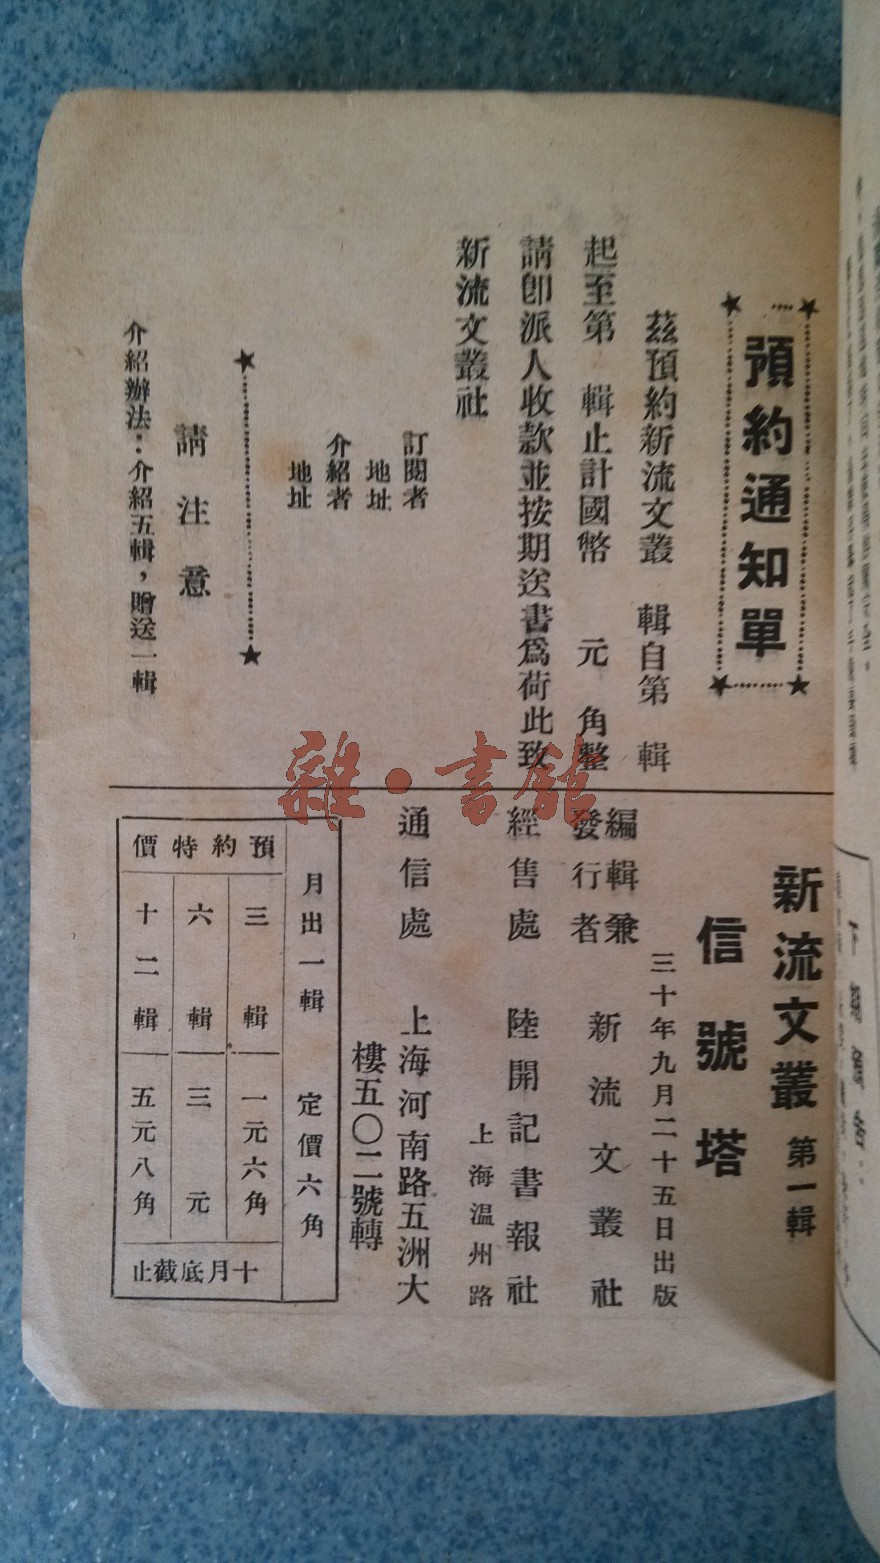 預約通知單
茲預約新流文叢　輯自第　輯
起至第　輯止計國幣　元　角整
請卽派人收款並按期送書爲荷此致
新流文叢社
訂閱者
地址
介紹者
地址
請注意
介紹辦法：介紹五輯，贈送一輯
新流文叢 第一輯
信號塔
三十年九月二十五日出版
編輯兼
發行者 新流文叢社
經售處 陸開記書報社
上海溫州路
通信處 上海河南路五洲大
樓五〇二號轉
月出一輯 定價六角
預約特價
三輯 一元六角
六輯 三元
十二輯 五元八角
十月底截止
雜·書館